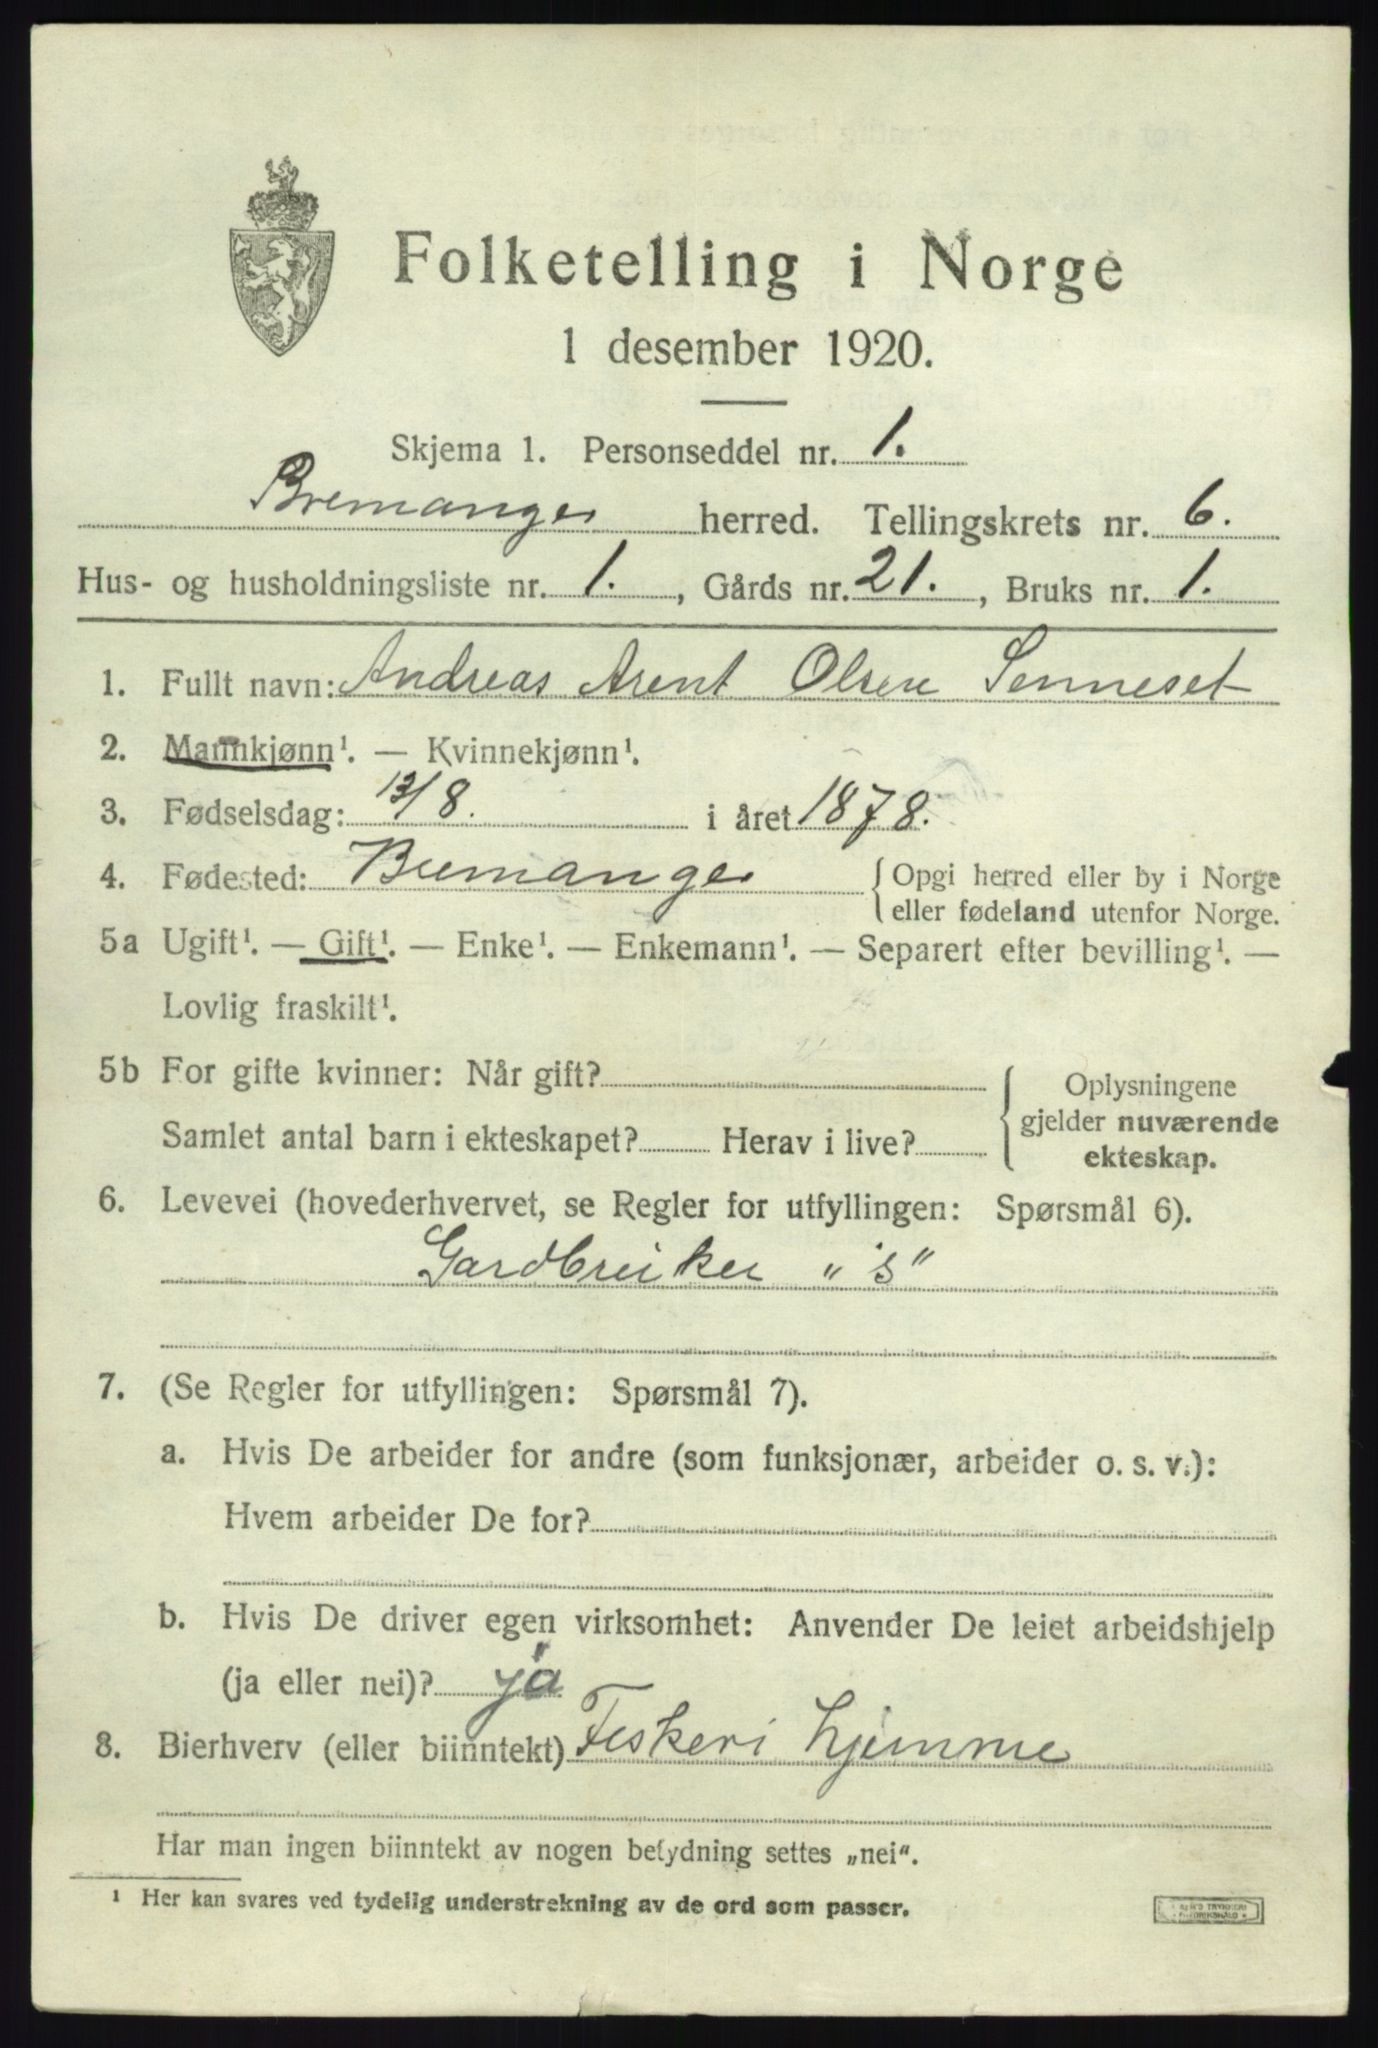 Folketelling i Norge
1 desember 1920.
Skjema 1. Personseddel nr. 1.
Bremanger herred. Tellingskrets nr. 6.
Hus- og husholdningsliste nr. 1. , Gårds nr. 21. , Bruks nr. 1.
1. Fullt navn: Andreas Arent Olsen Senneset
2. Mannkjønn¹. — Kvinnekjønn¹.
3. Fødselsdag: 13/8. i året 1878.
4. Fødested: Bremanger { Opgi herred eller by i Norge
eller fødeland utenfor Norge.
5a Ugift¹. — Gift¹. — Enke¹. — Enkemann¹. — Separert efter bevilling¹. —
Lovlig fraskilt¹.
5b For gifte kvinner: Når gift?
Samlet antal barn i ekteskapet? Herav i live?
{ Oplysningene
gjelder nuværende
ekteskap.
6. Levevei (hovederhvervet, se Regler for utfyllingen: Spørsmål 6).
Gardbruker „s“
7. (Se Regler for utfyllingen: Spørsmål 7).
a. Hvis De arbeider for andre (som funksjonær, arbeider o. s. v.):
Hvem arbeider De for?
b. Hvis De driver egen virksomhet: Anvender De leiet arbeidshjelp
(ja eller nei)? ja
8. Bierhverv (eller biinntekt) Fiskeri hjemme
Har man ingen biinntekt av nogen betydning settes „nei“.
¹ Her kan svares ved tydelig understrekning av de ord som passer.